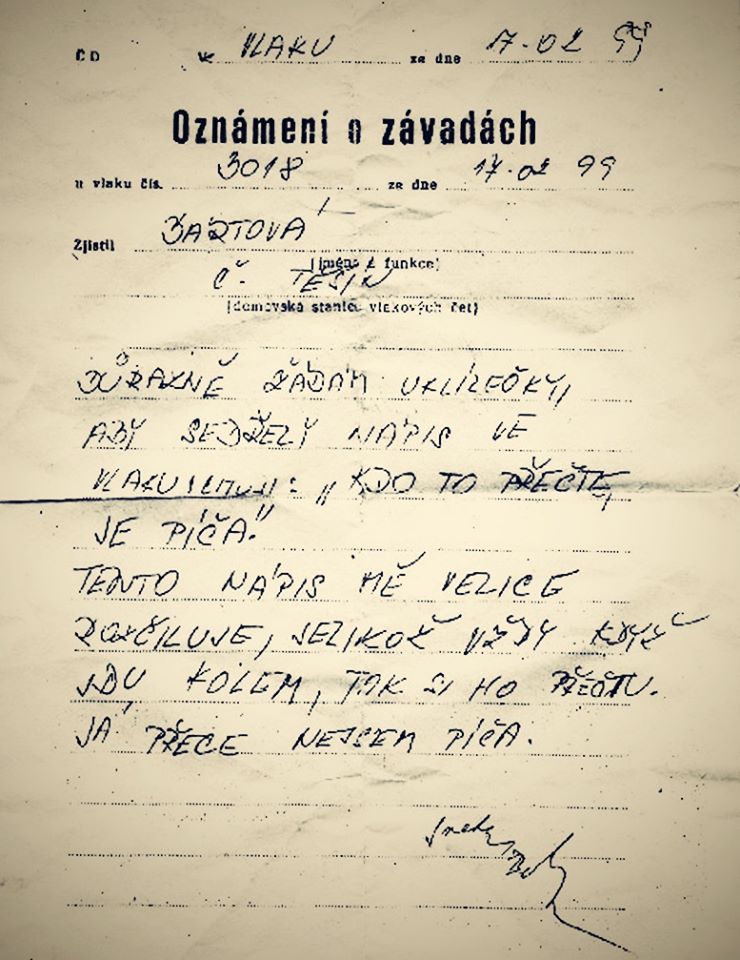 ČD VLAKU ze dne 17.02 99
Oznámení o závadách
u vlaku čís. 3018 ze dne 17.02 99
Zjistil BARTOVÁ
(jméno a funkce)
Č. TĚŠÍN
(domovská stanice vlakových čet)
DŮRAZNĚ ŽÁDÁM UKLÍZEČKY,
ABY SEDŘELY NÁPIS VE
VLAKU : „KDO TO PŘEČTE,
JE PÍČA."
TENTO NÁPIS MĚ VELICE
ROZČILUJE, JELIKOŽ VŽDY KDYŽ
JDU KOLEM, TAK SI HO PŘEČTU.
JÁ PŘECE NEJSEM PÍČA.